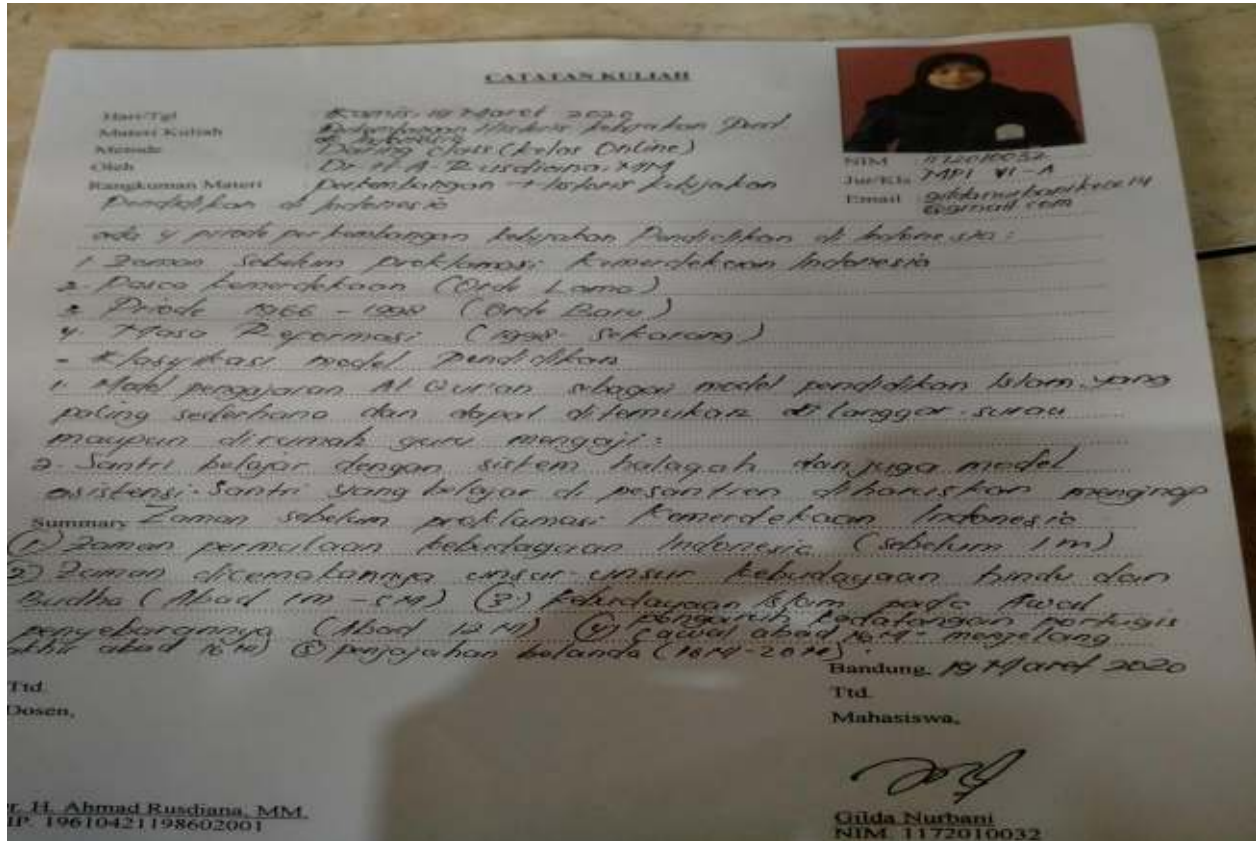 CATATAN KULIAH
Hari/Tgl : Kamis, 19 Maret 2020
Materi Kuliah : Perkembangan Historis kebijakan Pend.
di Indonesia
Metode : Daring Class (kelas Online)
Oleh : Dr. H. A. Rusdiana, MM
Rangkuman Materi : Perkembangan Historis Kebijakan
Pendidikan di Indonesia
NIM : 1172010032
Jur/Kls : MPI VI-A
Email : gildanurbani
@gmail.com
ada 4 priode perkembangan kebijakan Pendidikan di Indonesia :
1. Zaman Sebelum proklamasi Kemerdekaan Indonesia
2. Pasca kemerdekaan (Orde Lama)
3. Priode 1966 - 1998 (Orde Baru)
4. Masa Reformasi (1998- Sekarang)
- Klasyfikasi model pendidikan
1. Model pengajaran Al Qur'an sebagai model pendidikan Islam yang
paling sederhana dan dapat ditemukan di langgar-surau
maupun dirumah guru mengaji :
2. Santri belajar dengan sistem halaqah dan juga model
asistensi. Santri yang belajar di pesantren diharuskan menginap
Summary Zaman sebelum proklamasi Kemerdekaan Indonesia
① Zaman permulaan kebudayaan Indonesia (sebelum 1 m)
② Zaman unsur-unsur kebudayaan hindu dan
Budha (Abad 1m - 5M) ③ Kebudayaan Islam pada Awal
penyebarannya (Abad 12 M) ④ pengaruh kedatangan portugis
(awal abad 16 M - menjelang
akhir abad 16 M) ⑤ penjajahan belanda (16M-20M).
Bandung, 19 Maret 2020
Ttd.
Dosen,
Ttd.
Mahasiswa,
r. H. Ahmad Rusdiana, MM.
IP. 19610421198602001
Gilda Nurbani
NIM. 1172010032